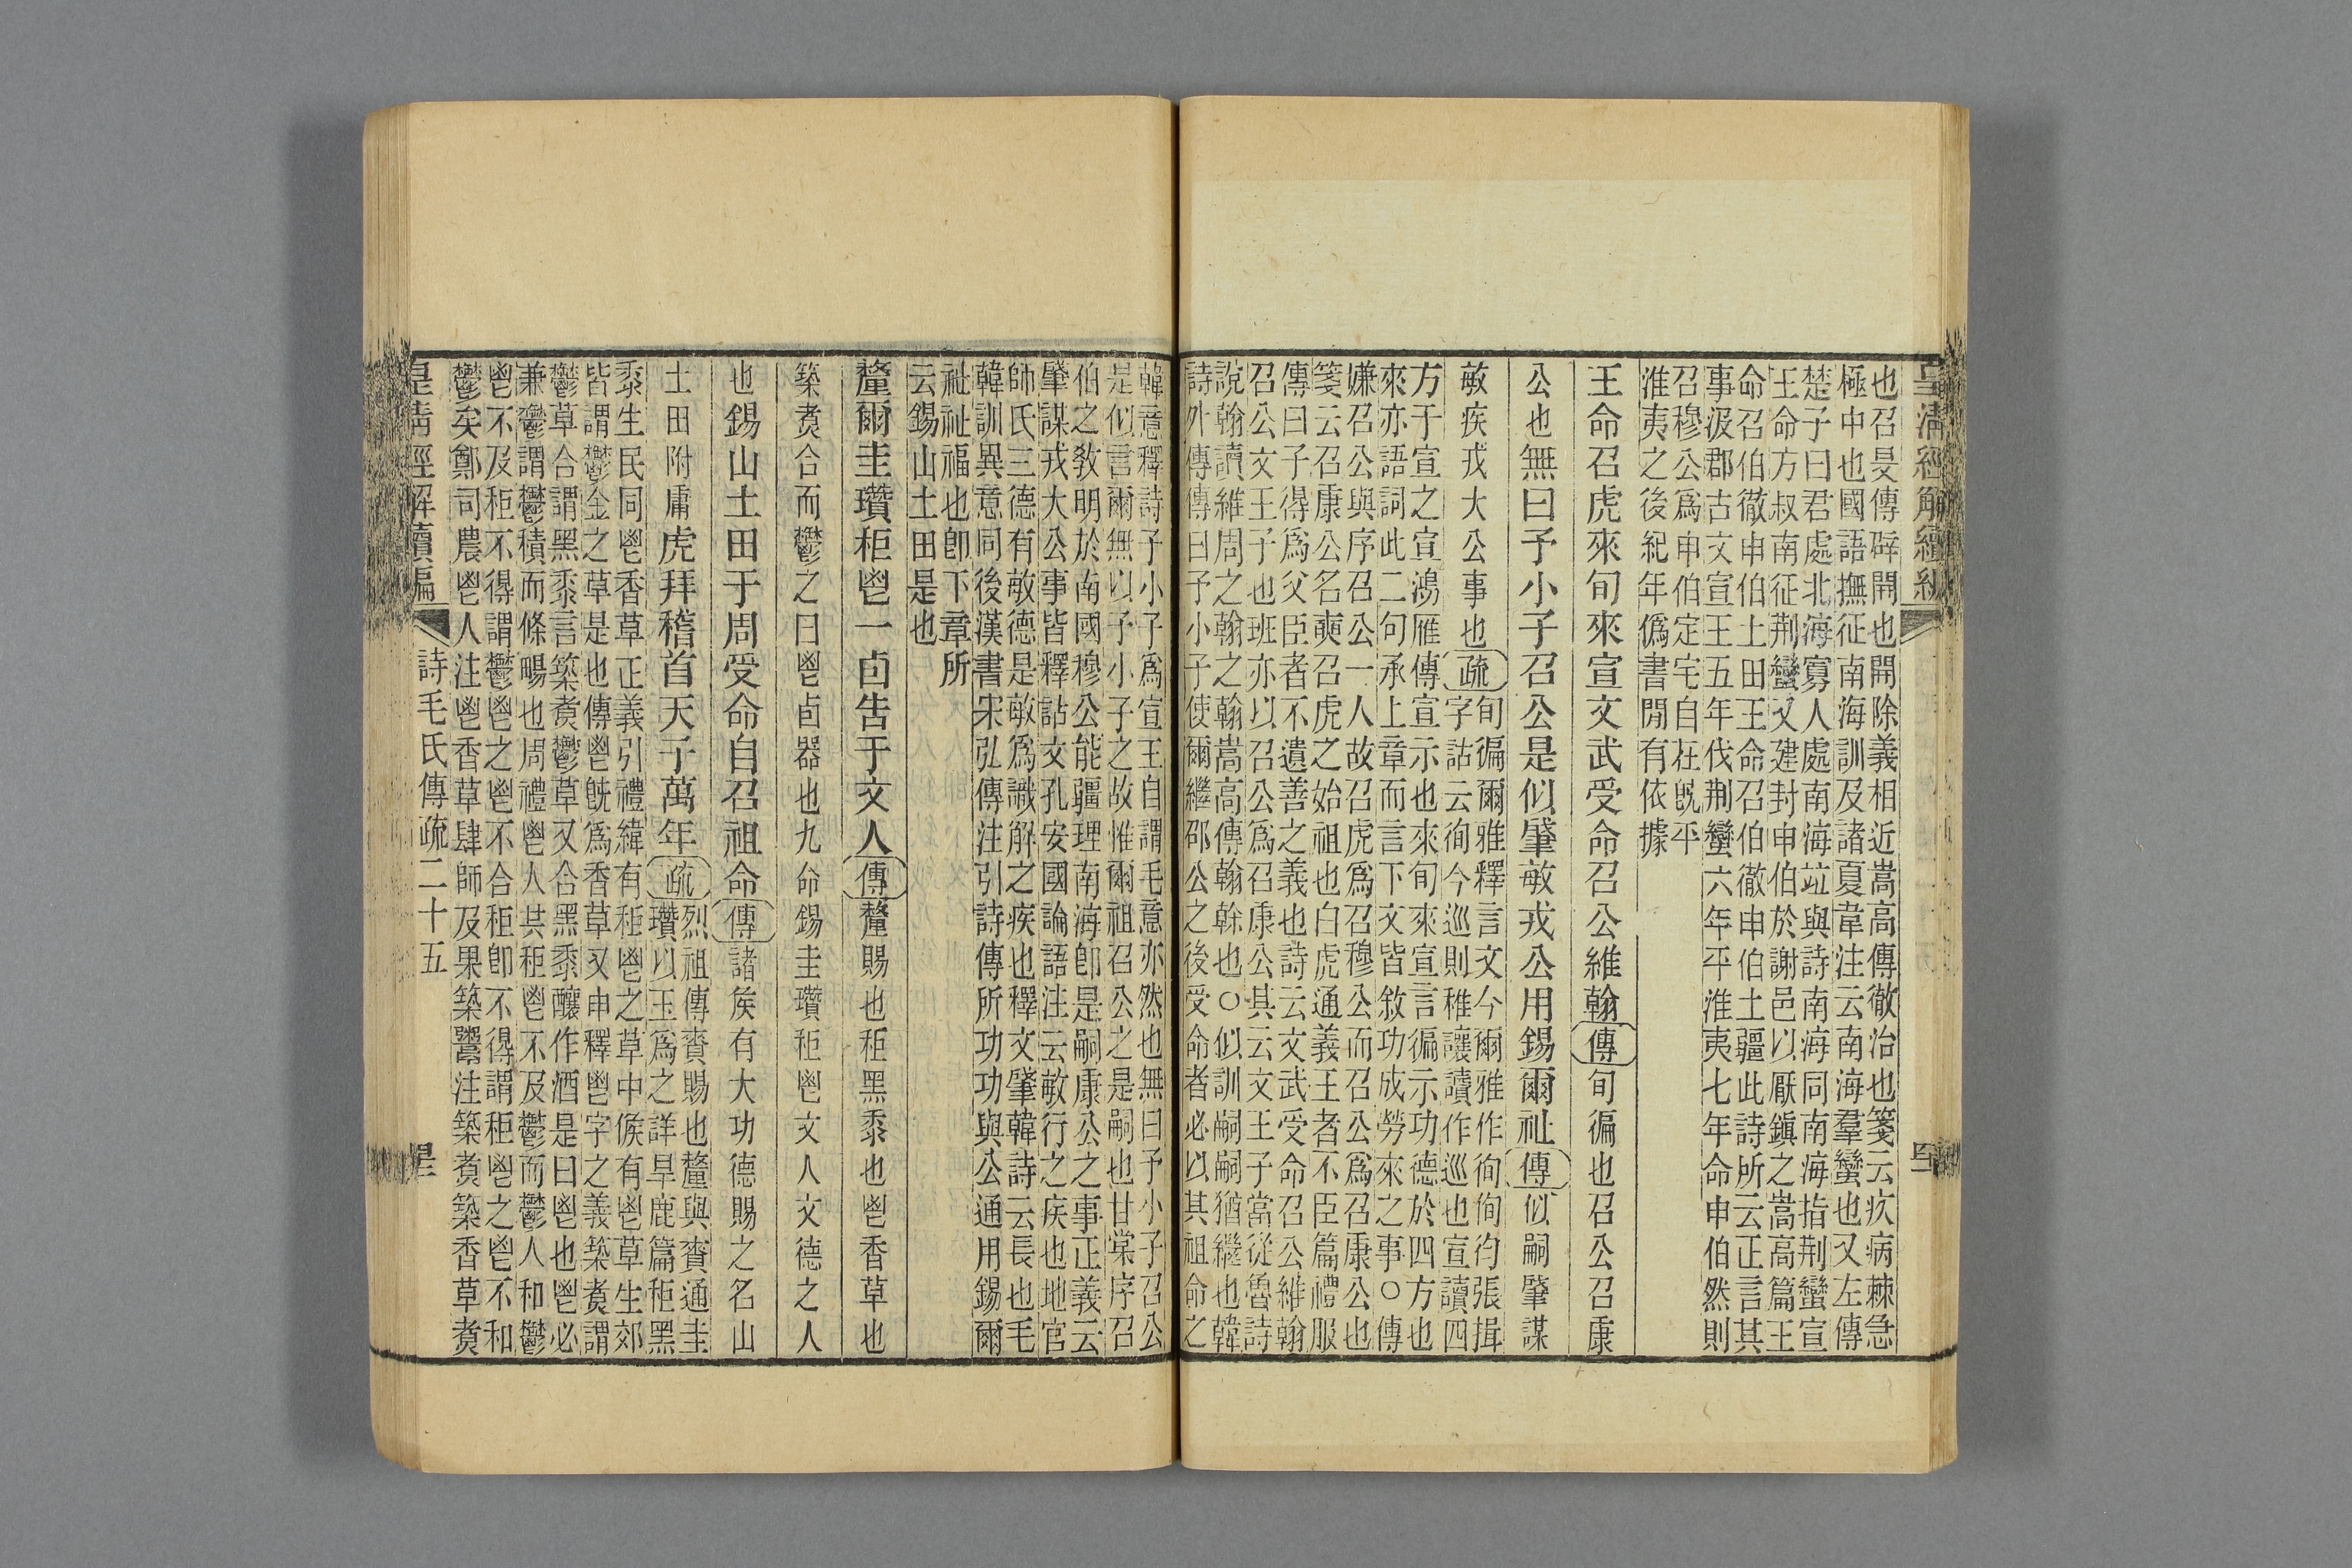 皇清經解續編
也召旻傳辟開也開除義相近嵩高傳徹治也箋云疚病棘急
極中也國語撫征南海訓及諸夏韋注云南海羣蠻也又左傳
楚子曰君處北海寡人處南海竝與詩南海同南海指荆蠻宣
王命方叔南征荆蠻又建封申伯於謝邑以厭鎭之嵩高篇王
命召伯徹申伯土田王命召伯徹申伯土疆此詩所云正言其
事汲郡古文宣王五年伐荆蠻六年平淮夷七年命申伯然則
召穆公爲申伯定宅自在旣平
淮夷之後紀年僞書閒有依據
王命召虎來旬來宣文武受命召公維翰傳旬徧也召公召康
公也無曰予小子召公是似肇敏戎公用錫爾祉傳似嗣肇謀
敏疾戎大公事也疏
旬徧爾雅釋言文今爾雅作徇徇彴張揖
字詁云徇今巡則稚讓讀作巡也宣讀四
方于宣之宣鴻雁傳宣示也來旬來宣言徧示功德於四方也
來亦語詞此二句承上章而言下文皆敘功成勞來之事○傳
嫌召公與序召公一人故召虎爲召穆公而召公爲召康公也
箋云召康公名奭召虎之始祖也白虎通義王者不臣篇禮服
傳曰子得爲父臣者不遺善之義也詩云文武受命召公維翰
召公文王子也班亦以召公爲召康公其云文王子當從魯詩
說翰讀維周之翰之翰嵩高傳翰榦也○似訓嗣嗣猶繼也韓
詩外傳傳曰予小子使爾繼邵公之後受命者必以其祖命之
韓意釋詩予小子爲宣王自謂毛意亦然也無曰予小子召公
是似言爾無以予小子之故惟爾祖召公之是嗣也甘棠序召
伯之敎明於南國穆公能疆理南海卽是嗣康公之事正義云
肇謀戎大公事皆釋詁文孔安國論語注云敏行之疾也地官
師氏三德有敏德是敏爲識解之疾也釋文肇韓詩云長也毛
韓訓異意同後漢書宋弘傳注引詩傳所功功與公通用錫爾
祉祉福也卽下章所
云錫山土田是也
釐爾圭瓚秬鬯一卣告于文人傳釐賜也秬黑黍也鬯香草也
築煑合而鬱之曰鬯卣器也九命錫圭瓚秬鬯文人文德之人
也錫山土田于周受命自召祖命傳諸矦有大功德賜之名山
土田附庸虎拜稽首天子萬年疏
烈祖傳賚賜也釐與賚通圭
瓚以玉爲之詳旱鹿篇秬黑
黍生民同鬯香草正義引禮緯有秬鬯之草中候有鬯草生郊
皆謂鬱金之草是也傳鬯旣爲香草又申釋鬯字之義築煑謂
鬱草合謂黑黍言築煑鬱草又合黑黍釀作酒是曰鬯也鬯必
兼鬱謂鬱積而條暢也周禮鬯人共秬鬯不及鬱而鬱人和鬱
鬯不及秬不得謂鬱鬯之鬯不合秬卽不得謂秬鬯之鬯不和
鬱矣鄭司農鬯人注鬯香草肆師及果築鬻注築煑築香草煑
皇淸經解續編
詩毛氏傳疏二十五